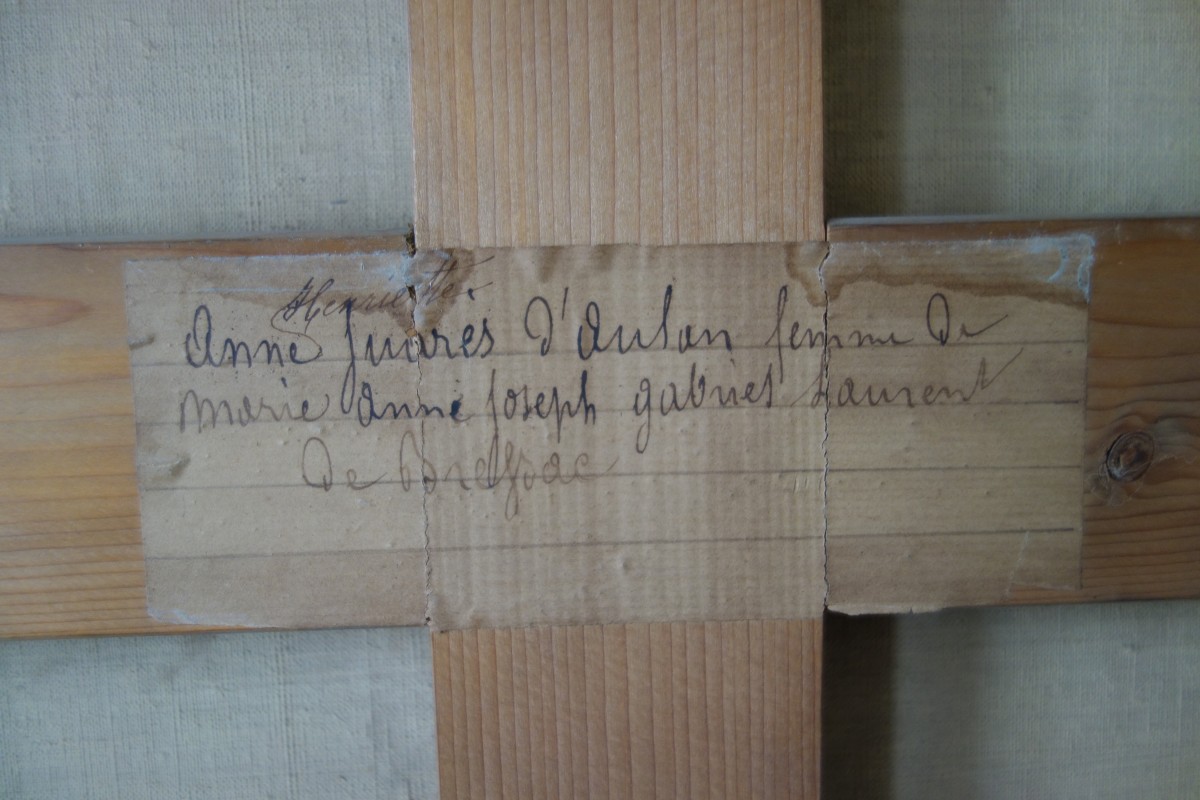 Henriette
Anne Juarès D'aulan femme De
marie anne joseph gabriel Laurent
De Bressac